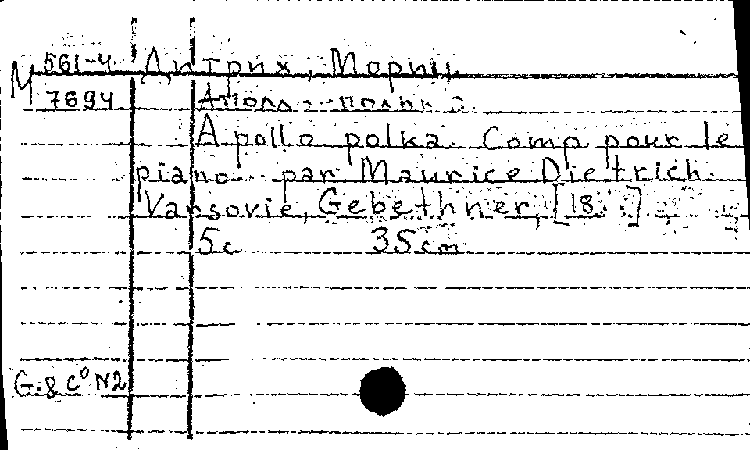 М 561-4 Дитрих, Мориц.
7694 Аполло-полька.
Apollo polka. Comp. pour le
piano par Maurice Dietrich.
Varsovie, Gebethner, [18 ]
5c 35cm
G. & Cº N2